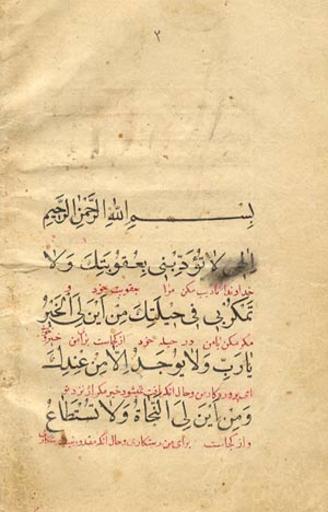 ٢
بِسْمِ اللهِ الرَّحْمٰنِ الرَّحِيمِ
اِلٰهِي لَا تُؤَدِّبْنِي بِعُقُوبَتِكَ وَلَا
خداوندا تادیب مکن مرا بعقوبت خود و
تَمْكُرْ بِي فِي حِيلَتِكَ مِنْ اَيْنَ لِيَ الْخَيْرُ
مکر مکن بامن در حیله خود از کجاست برای من خیر
يَا رَبِّ وَلَا يُوجَدُ اِلَّا مِنْ عِنْدِكَ
ای پروردکار من و حال آنکه یافت نمیشود خیر مکر از نزد تو
وَمِنْ اَيْنَ لِيَ النَّجَاةُ وَلَا تُسْتَطَاعُ
و از کجاست برای من رستکاری و حال آنکه مقدور نیست